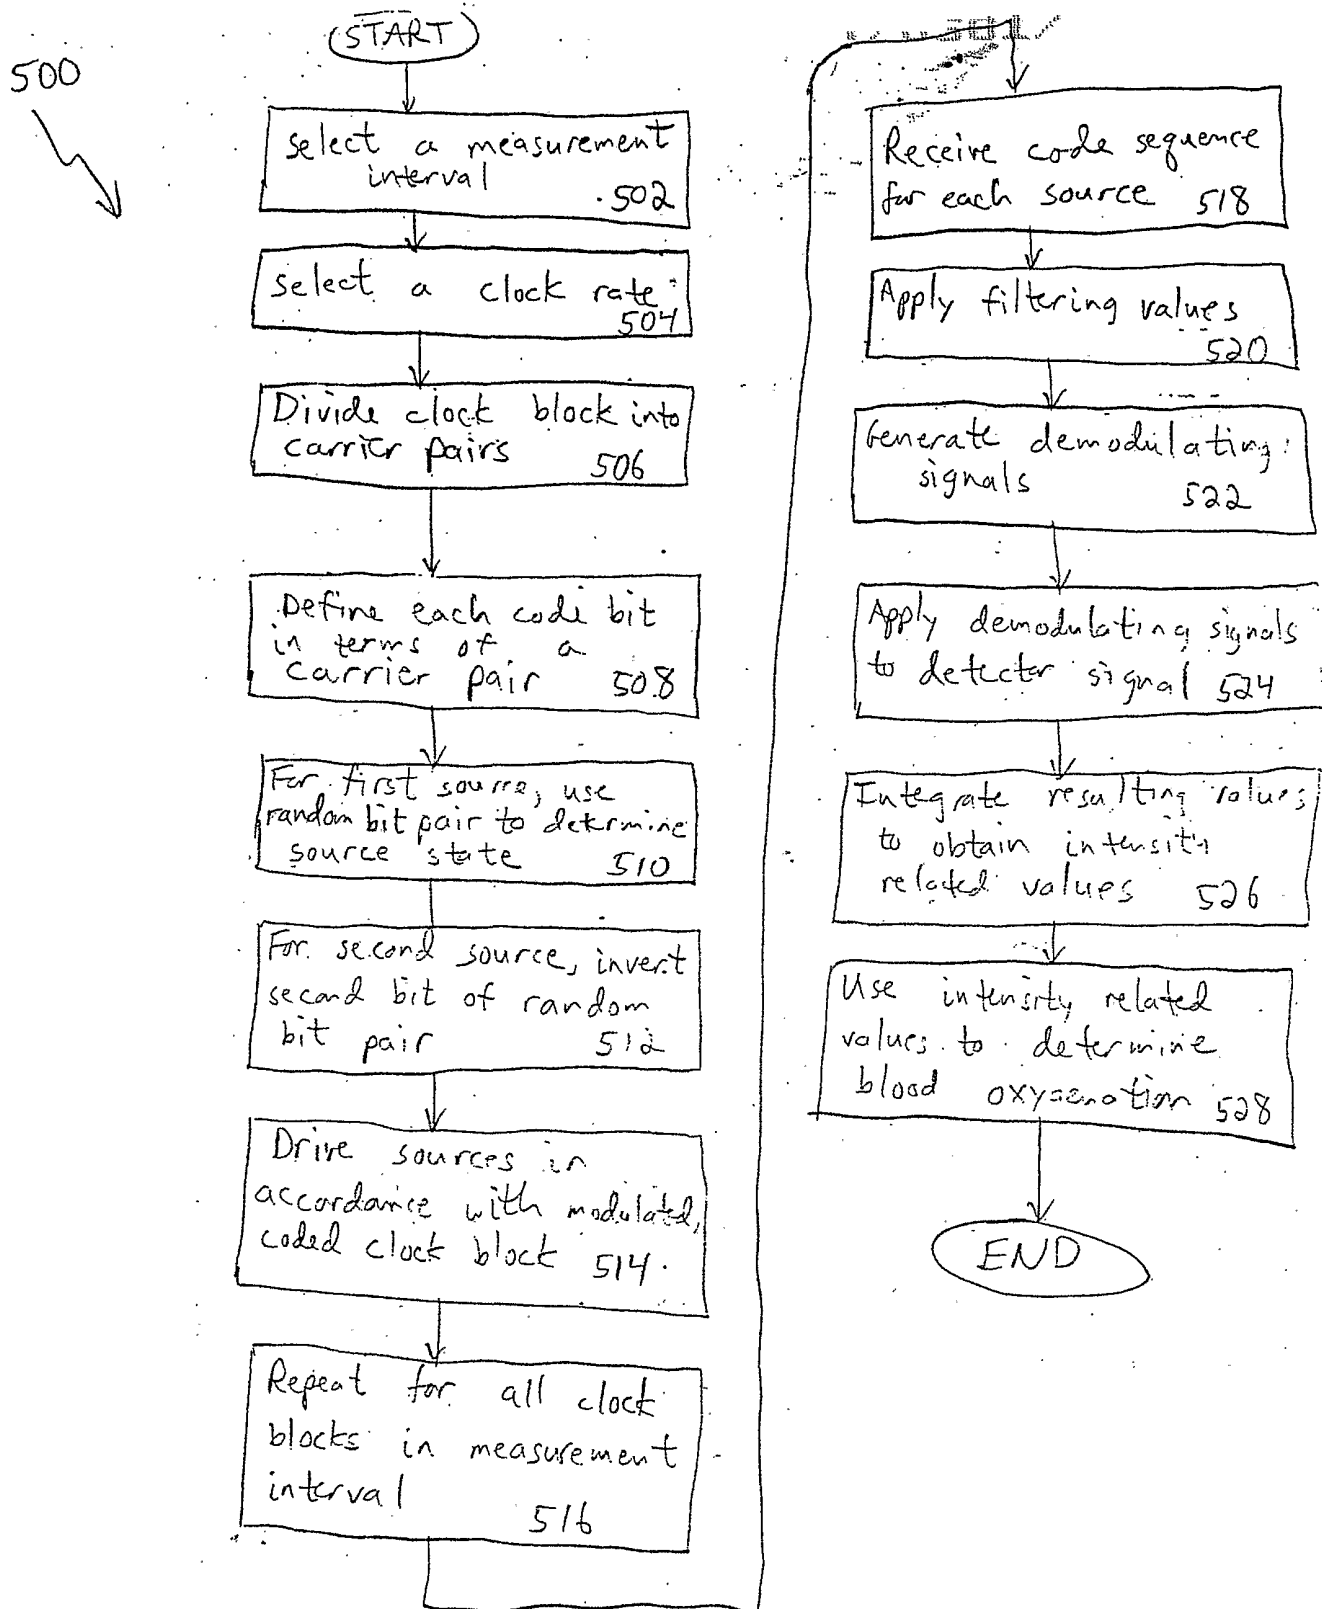 500
START
select a measurement
interval
502
select a clock rate
504
Divide clock block into
carrier pairs 506
Define each code bit
in terms of a
carrier pair 508
For first source, use
random bit pair to determine
source state 510
For second source, invert
second bit of random
bit pair 512
Drive sources in
accordance with modulated,
coded clock block 514
Repeat for all clock
blocks in measurement
interval
516
Receive code sequence
for each source 518
Apply filtering values
520
Generate demodulating
signals 522
Apply demodulating signals
to detector signal 524
Integrate resulting values
to obtain intensity
related values 526
Use intensity related
values to determine
blood oxygenation 528
END